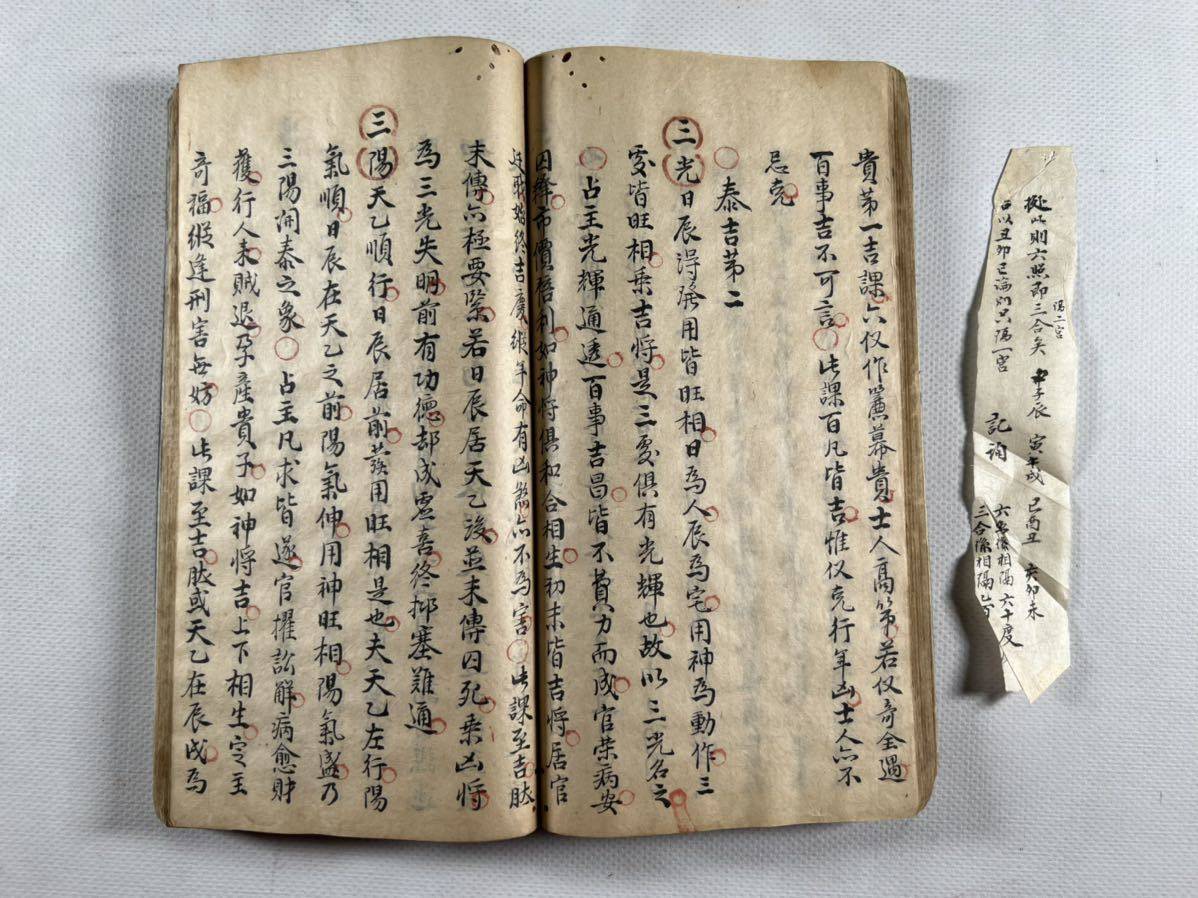 貴第一吉課亦仪作簾幕貴士人高第若仪奇全遇
百事吉不可言○此課百凡皆吉惟仪克行年凶士人亦不
忌克
○泰吉第二
三光日辰得發用皆旺相日為人辰為宅用神為動作三
處皆旺相乗吉将是三處俱有光輝也故以三光名之
○占主光輝通透百事吉昌皆不費力而成官荣病安
囚釋市價倍利如神将俱和合相生初末皆吉将居官
迁職始終吉慶縱年命有凶煞亦不為害○此課至吉肰
末傳亦極要緊若日辰居天乙後並末傳囚死乗凶将
為三光失明前有功德却成虚喜終抑塞難通
三陽天乙順行日辰居前發用旺相是也夫天乙左行陽
氣順日辰在天乙之前陽氣伸用神旺相陽氣盛乃
三陽開泰之象○占主凡求皆遂官擢訟解病愈財
獲行人来賊退孕產貴子如神将吉上下相生定主
奇福縱逢刑害無妨○此課至吉肰或天乙在辰戌為
隔二宮
據此則六照即三合矣 申子辰 寅午戌 巳酉丑 亥卯未
以丑卯巳論則只隔一宮 記詢
六像相隔六十度
三合像相隔